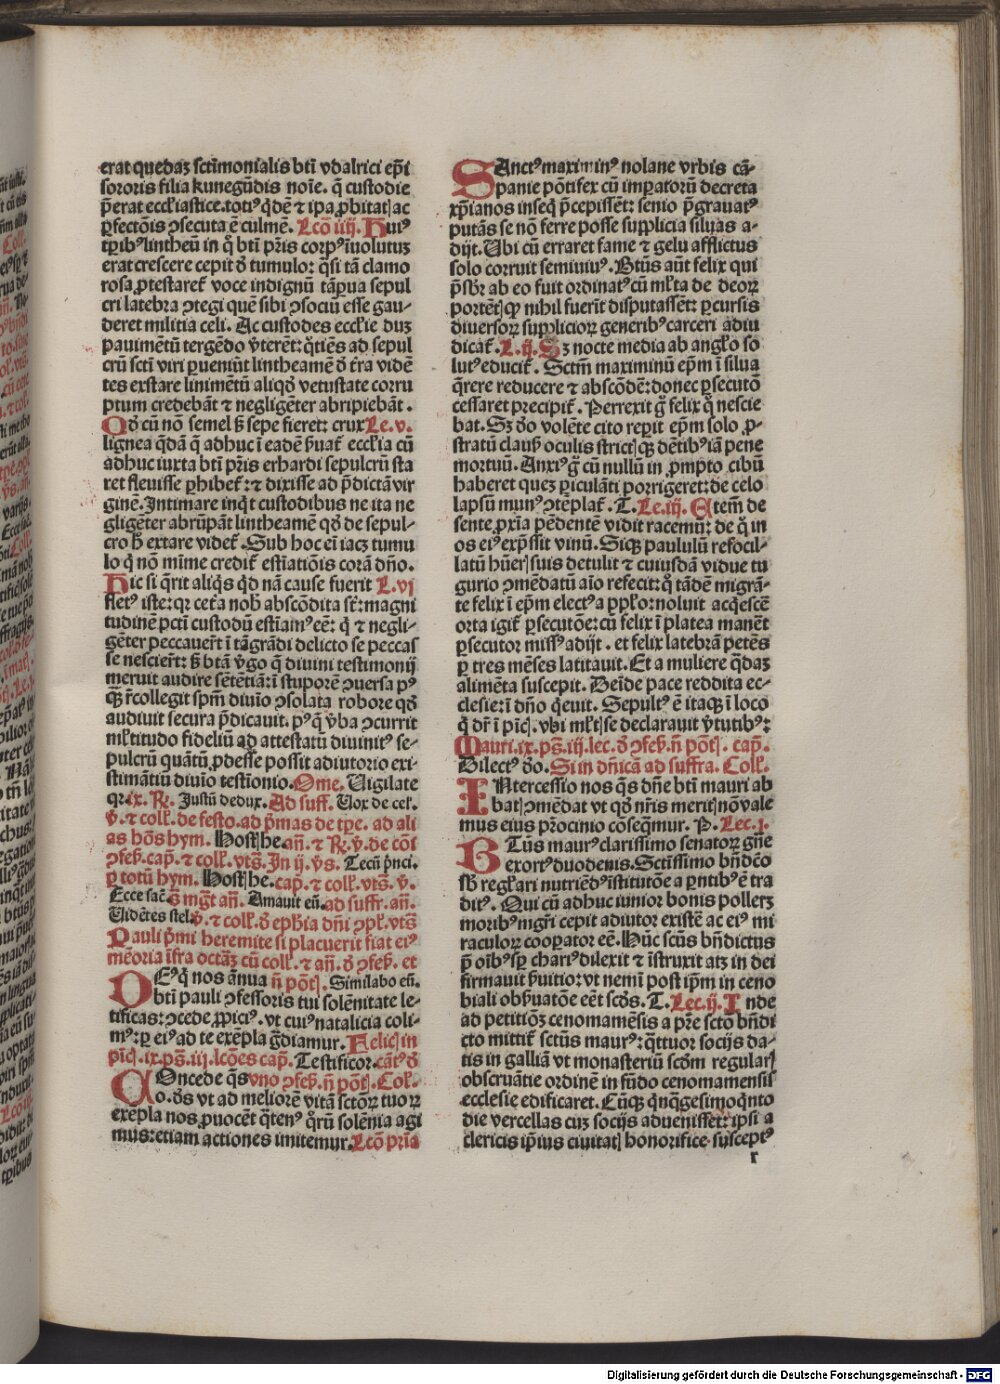 erat quedaʒ sctīmonialis btī vdalrici ep̄i
sororis filia kunegūdis noīe. q̄ custodie
p̄erat eccl̓iastice. totiꝰ qͥdē ⁊ ip̄a ꝓbitatꝭ ac
ꝑfectōis ↄsecuta ē culmē. Lcō iiij. Huiꝰ
tꝑibꝰ lintheū in qͦ btī pr̄is corpꝰ īuolutuʒ
erat crescere cepit ō tumulo: qͣsi tā clamo
rosa ꝓtestaret̄ voce indignū tāpͥua sepul
cri latebra ↄtegi quē sibi ↄsociū esse gau-
deret militia celi. Ac custodes eccl̓ie duʒ
pauimētū tergēdo ṽterēt: qͦtiēs ad sepul
crū sctī viri pueniūt lintheamē ō t̄ra vidē
tes exstare linimētū aliqͦō vetustate corru
ptum credebāt ⁊ negligēter abripiebāt.
Qō cū nō semel s̄ sepe fieret: crux Le. v.
lignea qͣdā q̄ adhuc ī eadē s̄uat̄ eccl̓ia cū
adhuc iuxta btī pr̄is erhardi sepulcrū sta
ret fleuisse ꝑhibet̄: ⁊ dixisse ad p̄dictā vir
ginē. Intimare inqͥt custodibus ne ita ne
gligēter abrūpāt lintheamē qōō de sepul-
cro h̄ extare videt̄. Sub hoc eī iacʒ tumu
lo qͥ nō mīme credit̄ estīatiōis corā dn̄o.
Hic si qͥrit aliqͥs qͥd nā cause fuerit L. vj
fletꝰ iste: qꝛ cet̄a nob̄ abscōdita st̄: magni
tudinē pctī custodū estīamꝰ eē: qͥ ⁊ negli-
gēter peccauer̄t ī tāgrādi delicto se peccas
se nescier̄t: s̄ btā ṽgo q̄ diuini testimonij
meruit audire sētētiā: ī stuporē ↄuersa pꝰ
qͣꝫ r̄collegit spm̄ diuīo ↄsolata robore qōō
audiuit secura p̄dicauit. pꝰqͣ ṽba ↄcurrit
ml̓titudo fideliū ad attestatū diuinitꝰ se-
pulcrū quātū ꝓdesse possit adiutorio exi-
stimātiū diuīo testīonio. Ome. Uigilate
qꝛ. ix. ℟. Justū dedux. Ad suff. Uox de cel̓.
v̄. ⁊ coll̓. de festo. ad p̄mas de tp̄e. ad ali
as hōs hym. Hostꝭ he. añ. ⁊ ℟. v̄. de cōi
ↄfeb̄. cap̄. ⁊ coll̓. vts̄. In ij. v̄s. Tecū pͥnci.
ꝑ totū hym. Hostꝭ he. cap̄. ⁊ coll̓. vts̄. v̄.
Ecce saē. s̄ mḡt añ. Amauit eū. ad suffr. añ.
Uidētes stel. v̄. ⁊ coll̓. ō eph̄ia dn̄i ↄpl̓. vts̄
Pauli pͥmi heremite si placuerit fiat eiꝰ
mēoria īfra octāʒ cū coll̓. ⁊ añ. ō ↄfeb̄. et
DEꝰ qͥ nos ānua n̄ pōtꝭ. Similabo eū.
btī pauli ↄfessoris tui solēnitate le-
tificas: ↄcede ꝓpiciꝰ. vt cuiꝰ natalicia coli-
mꝰ: ꝑ eiꝰ ad te exēpla gͣdiamur. Felicꝭ in
pīcꝭ. ix. ps̄. iij. lcōes cap̄. Testificor. cāt̄ ō
COncede qͣs vno ↄfeb̄. n̄ pōtꝭ. Col̓.
o. ds̄ vt ad meliorē vitā sctōꝝ tuoꝝ
exēpla nos ꝓuocēt qͣtenꝰ qͦrū solēnia agi
mus: etiam actiones imitemur. Lcō prīa
SAnctꝰ maximinꝰ nolane vrbis cā-
panie pōtifex cū imꝑatorū decreta
xp̄ianos inseqͥ p̄cepissēt: senio p̄grauatꝰ
putās se nō ferre posse supplicia siluas a-
dijt. Ubi cū erraret fame ⁊ gelu afflictus
solo corruit semiuiuꝰ. Btūs aūt felix qui
p̄sbr̄ ab eo fuit ordinatꝰ cū ml̓ta de deoꝝ
portētꝭ qꝛ nihil fuerīt disputassēt: ꝑcursis
diuersoꝝ suppliciorꝝ generibꝰ carceri adiu
dicat̄. L. ij. Sʒ nocte media ab angl̓o so
lutꝰ educit̄. Sctm̄ maximinū ep̄m ī silua
qͥrere reducere ⁊ abscōdē: donec ꝑsecutō
cessaret precipit̄. Perrexit ḡ felix qͦ nescie
bat. Sʒ dō volēte cito reꝑit ep̄m solo ꝓ-
stratū clausꝭ oculis strictꝭqꝫ dētibꝰ iā pene
mortuū. Anxiꝰ ḡ cū nullū in ꝓmpto cibū
haberet queʒ ꝑiculāti porrigeret: de celo
lapsū munꝰ ↄtēplat̄. T. Le. iij. Atem̄ de
sente ꝓxīa pēdentē vidit racemū: de qͦ in
os eiꝰ exp̄ssit vinū. Sicqꝫ paululū refocil-
latū hūerꝭ suis detulit ⁊ cuiusdā vidue tu
gurio ↄmēdatū aīo refecit: qͦ tādē migrā-
te felix ī ep̄m electꝰ a ppl̓o: noluit acqͥescē
orta igit̄ ꝑsecutōe: cū felix ī platea manēt
ꝑsecutor missꝰ adijt. et felix latebrā petēs
ꝑ tres mēses latitauit. Et a muliere qͣdaʒ
alimēta suscepit. Deīde pace reddita ec-
clesie: ī dn̄o qͥeuit. Sepultꝰ ē itaqꝫ ī loco
qͥ dr̄ ī pīcꝭ. vbi ml̓tꝭ se declarauit ṽtutibꝰ:
Mauri. ix. ps̄. iij. lec. ō ↄfeb̄. n̄ pōtꝭ. cap̄.
Dilectꝰ dō. Si in dn̄icā ad suffra. Coll̓.
INtercessio nos qͣs dn̄e btī mauri ab
batꝭ ↄmēdat vt qō nr̄is meritꝭ nō vale
mus eius pr̄ocinio cōseqͣmur. P. Lec. j.
BTūs maurꝰ clarissimo senatoꝝ gn̄e
exortꝰ duodenis. Sctissimo bn̄dēō
sb̄ regl̓ari nutriēdꝰ īstitutōe a pntibꝰ ē tra
ditꝰ. Qui cū adhuc iunior bonis polleʒ
moribꝰ mgr̄i cepit adiutor existē ac eiꝰ mi
raculoꝝ cooꝑator eē. Hūc sctūs bn̄dictus
p̄ oībꝰ sꝑ chariꝰ dilexit ⁊ īstruxit atʒ in dei
firmauit s̄uitio: vt nemī post ip̄m in ceno
biali obs̄uātōe eēt scd̄s. T. Lec. ij. Inde
ad petitiōʒ cenomamēsis a pr̄e sctō bn̄di
cto mittit̄ sctūs maurꝰ: qͣttuor socijs da-
tis in galliā vt monasteriū scdm̄ regularꝭ
obseruātie ordinē in fūdo cenomamensis
ecclesie edificaret. Cūqꝫ qͥnqͣgesimoqͥnto
die vercellas cuʒ socijs aduenisset: ipsi a
clericis ip̄ius ciuitatꝭ honorifice susceptꝰ
r
Digitalisierung gefördert durch die Deutsche Forschungsgemeinschaft - DFG